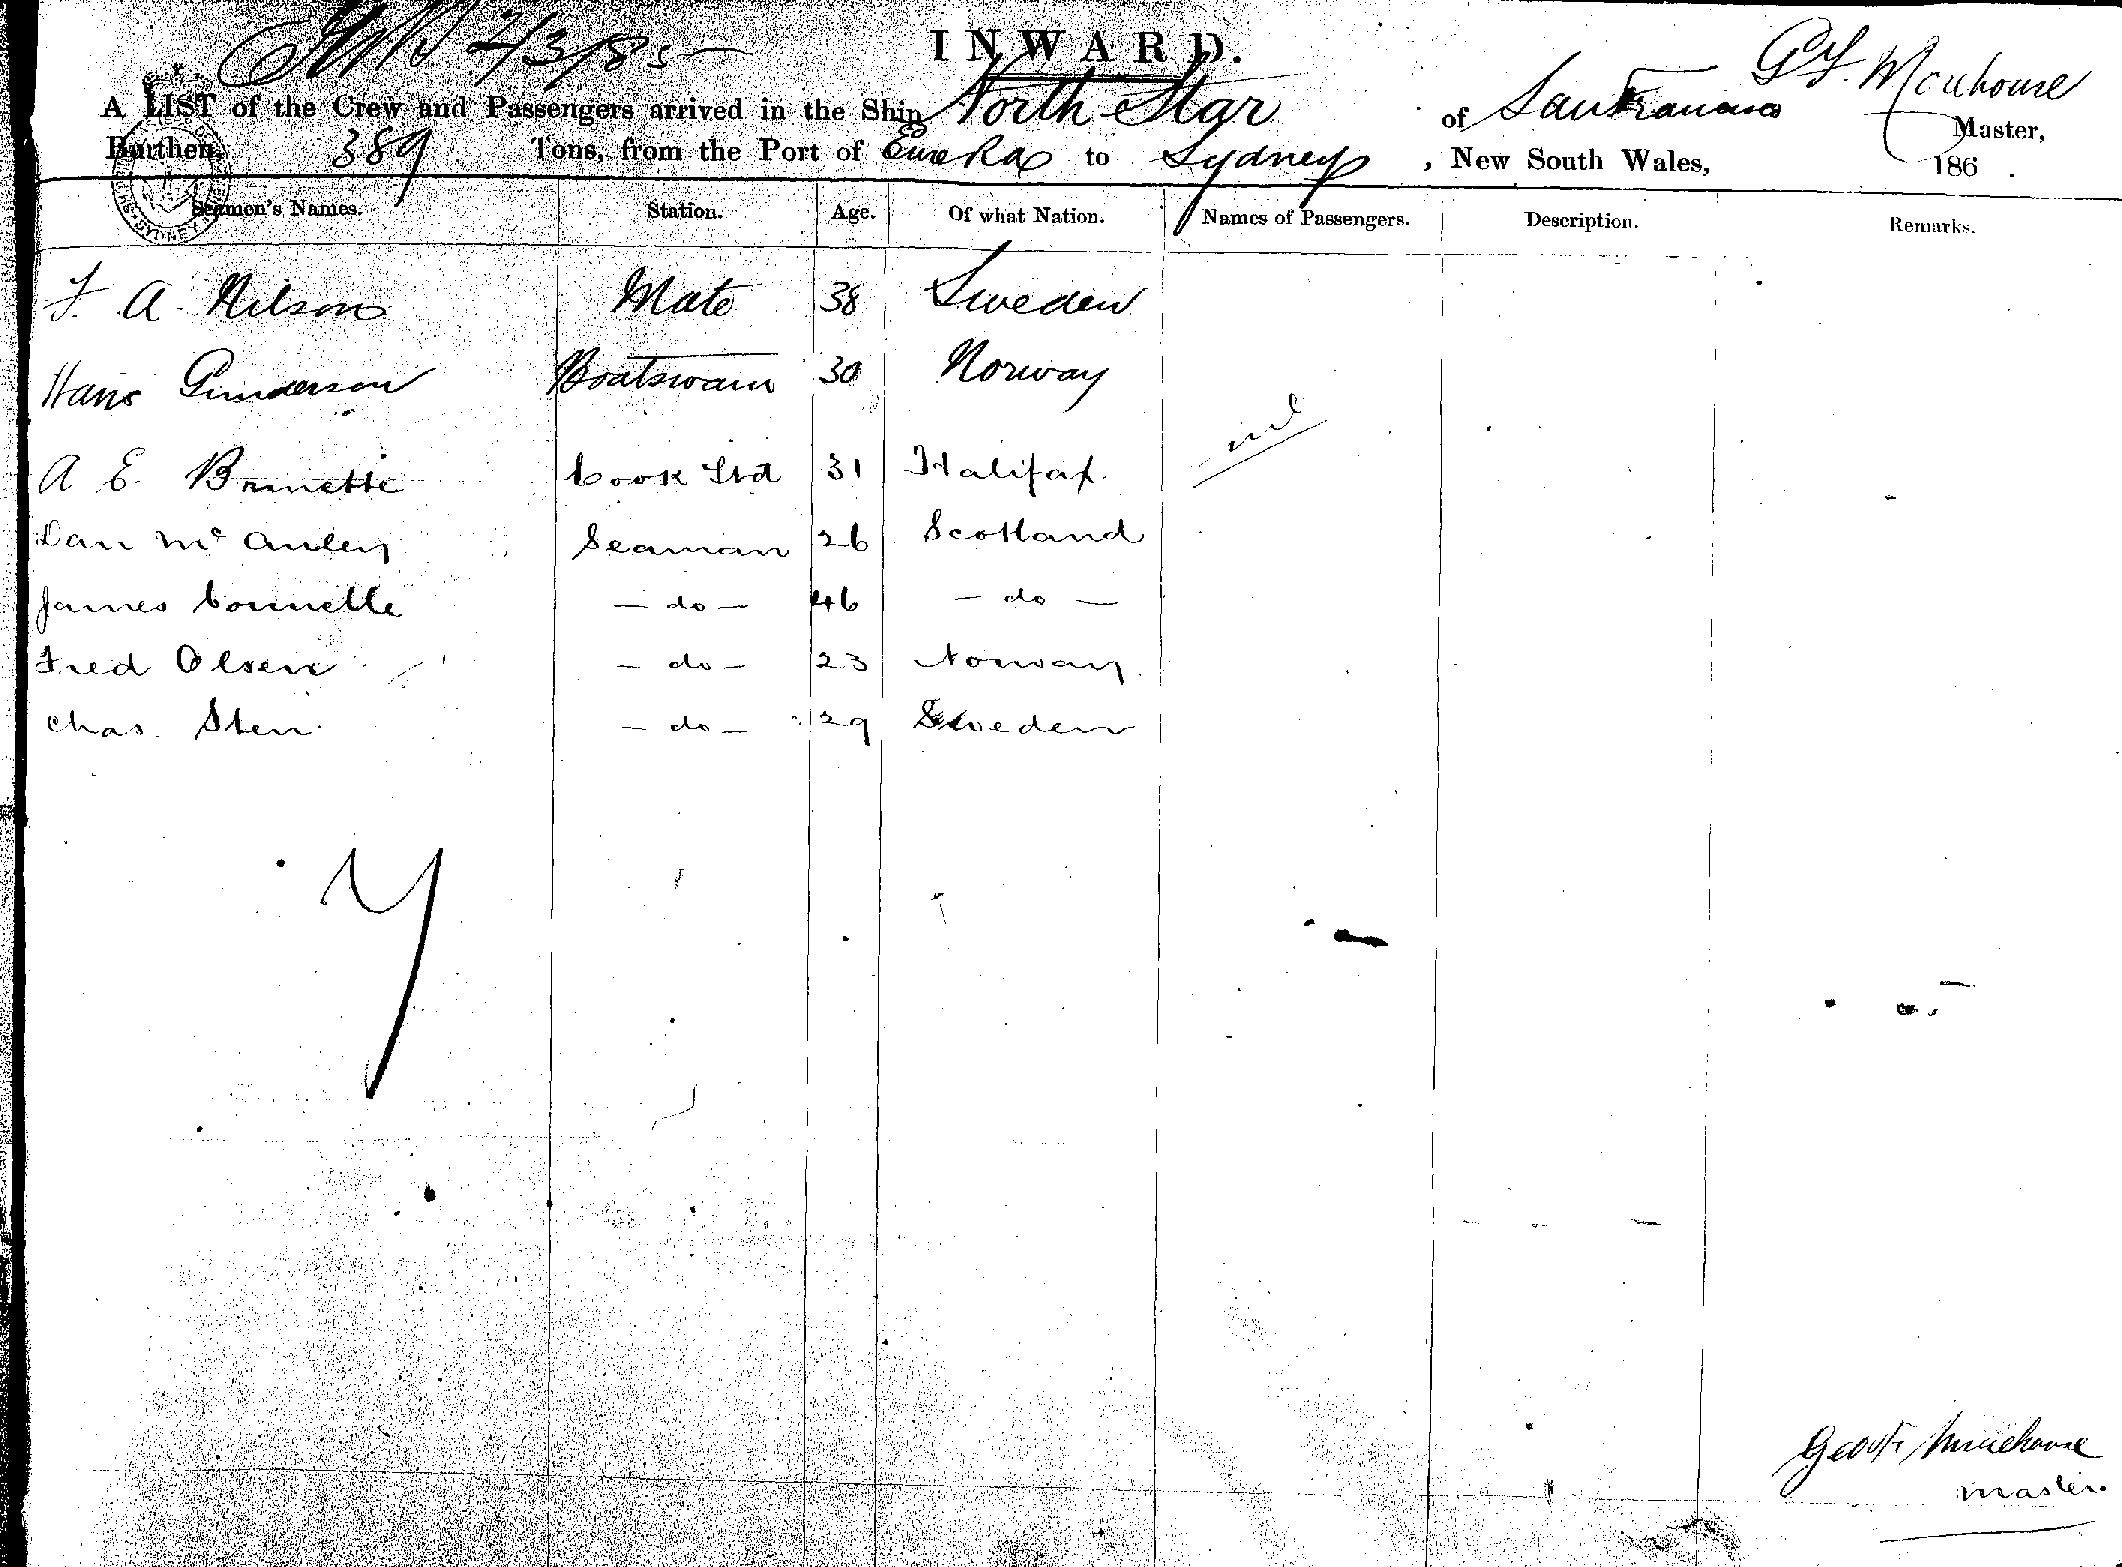 2/3/85
INWARD.
A LIST of the Crew and Passengers arrived in the Ship North Star of San Francisco Master,
Burthen, 389 Tons, from the Port of Eureka to Sydney, New South Wales, 186 .
Seamen's Names. Station. Age. Of what Nation. Names of Passengers. Description. Remarks.
F. A. Nilson Mate 38 Sweden
Hans Gunderson Boatswain 30 Norway
nil
A E. Brunette Cook Std 31 Halifax
Dan Mc Auley Seaman 26 Scotland
James Connelle - do - 46 - do -
Fred Olsen - do - 23 Norway
Chas. Sten - do - 29 Sweden
master.